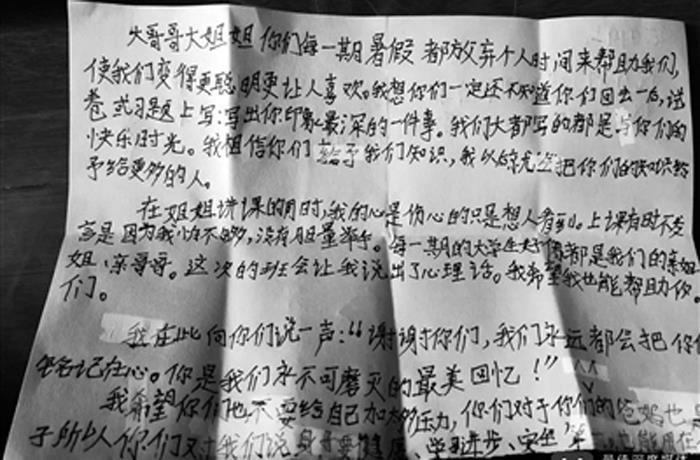 大哥哥大姐姐你们每一期暑假都放弃个人时间来帮助我们，
使我们变得更聪明更让人喜欢。我想你们一定还不知道你们回去后，试
卷或习题上写：写出你印象最深的一件事。我们大都写的都是与你们的
快乐时光。我相信你们给予我们知识，我以后也会把你们的知识
予给更多的人。
在姐姐讲课的时，我的心是伤心的只是想人看到。上课有时不发
言是因为我怕不够，没有胆量举手。每一期的大学生好像都是我们的亲姐
姐、亲哥哥。这次的班会让我说出了心理话。我希望我也能帮助你
们。
我在此向你们说一声：“谢谢你们，我们永远都会把你们
名记在心。你是我们永不可磨灭的最美回忆！”
我希望你们也不要给自己加多压力，你们对于你们的爸妈也是
子所以人你们又对我们说身体要健康、学习进步、安全